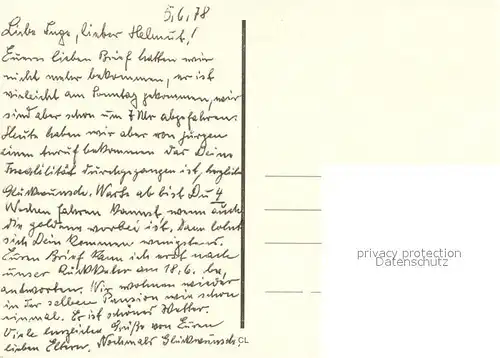 5.6.78
Liebe Inge, lieber Helmut!
Euern lieben Brief hatten wir
nicht mehr bekommen, er ist
vieleicht am Sonntag gekommen, wir
sind aber schon um 7 Uhr abgefahren.
Heute haben wir aber von Jürgen
einen Anruf bekommen das Deine
durchgegangen ist, herzlich
Glückwunsche. Warte ab bist Du 4
Wochen fahren kannst, wenn auch
die goldene vorbei ist. Dann lohnt
sich Dein kommen wenigstens.
Euren Brief kann ich erst nach
unser Rückkehr am 18.6. be,
antworten. Wir wohnen wieder
in der selben Pension wie schon
einmal. Es ist schönes Wetter.
Viele herzlichen Grüße von Euren
lieben Eltern. Nochmals Glückwunsch
CL
privacy protection
Datenschutz